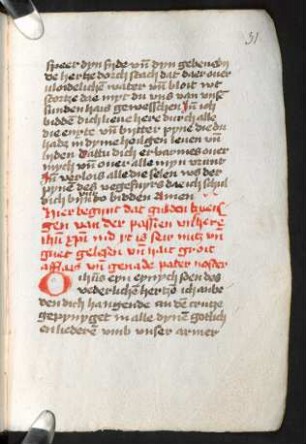 31
speer dyn syde vn̄ dyn gebened
ve hertze dorch stach dat daer over
vloidelichen water vn̄ bloit wt
stortze dae myt du vns van vnse
sunden haist gewesschen Jn̄ ich
bidde dich lieve here durch alle
die enxte vn̄ bitter pyne die du
hads in dyme hoilgen leven vn̄
lyden dattu dich erbarmes over
mych vn̄ over alle myn vrunt
vn̄ verlois alle die selen vys der
pyne des vegefuyrs dae ich schul
dich byn vur to bidden Amen
Hier begynt dat gulden
gen van der passien vns heren
ihū xpī vnd it is seir nutz vn̄
guet gelesen vn̄ hait groit
afflais vn̄ genade pater noster
O ihū eyn eynych soen des
vederlichen hertze ich anbe
den dich hangende an de crutze
gepynyget in alle dynē gotlich
en lederen vmb vnser armer